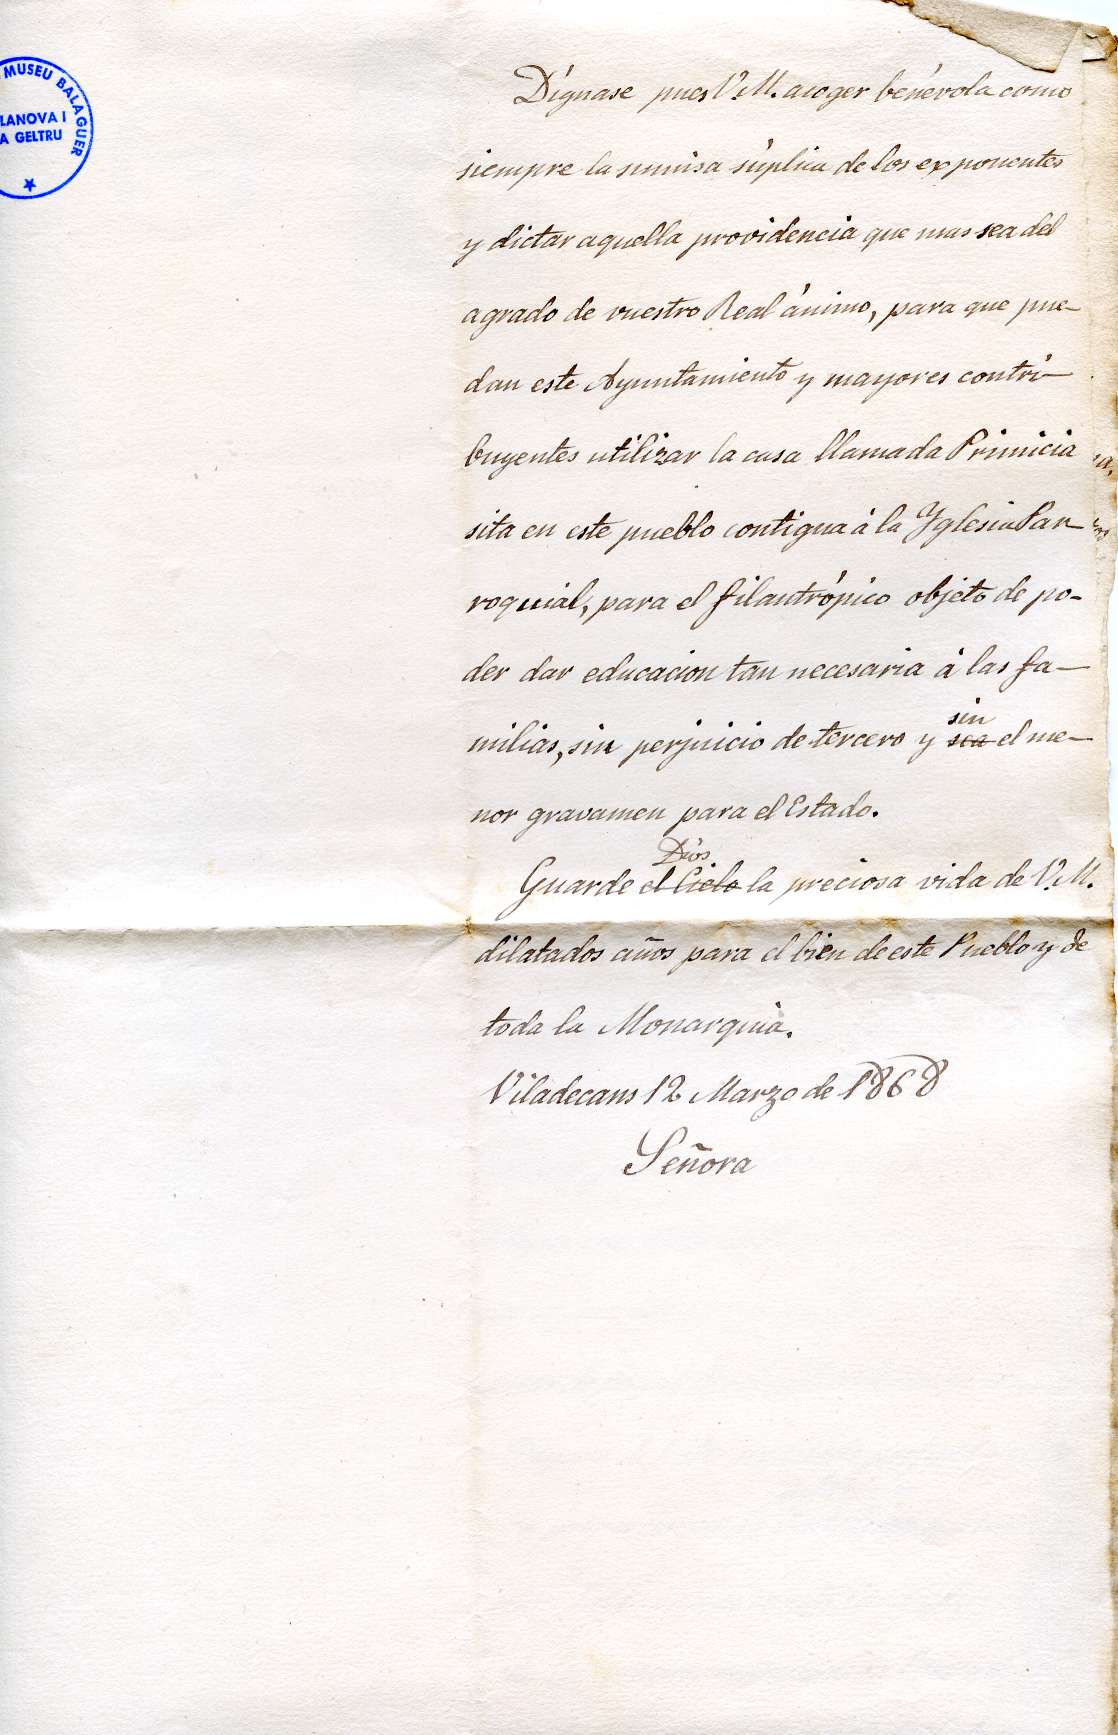 MUSEU BALAGUER
LANOVA I
A GELTRU
Dígnase pues V.M. acoger benévola como
siempre la sumisa súplica de los exponentes
y dictar aquella providencia que mas sea del
agrado de vuestro Real ánimo, para que pue-
dan este Ayuntamiento y mayores contri-
buyentes utilizar la casa llamada Primicia
sita en este pueblo contigua á la Yglesia Par-
roquial, para el filantrópico objeto de po-
der dar educacion tan necesaria á las fa-
milias, sin perjuicio de tercero y sea sin el me-
nor gravamen para el Estado.
Guarde el Cielo Dios la preciosa vida de V.M.
dilatados años para el bien de este Pueblo y de
toda la Monarquia.
Viladecans 12 Marzo de 1868
Señora